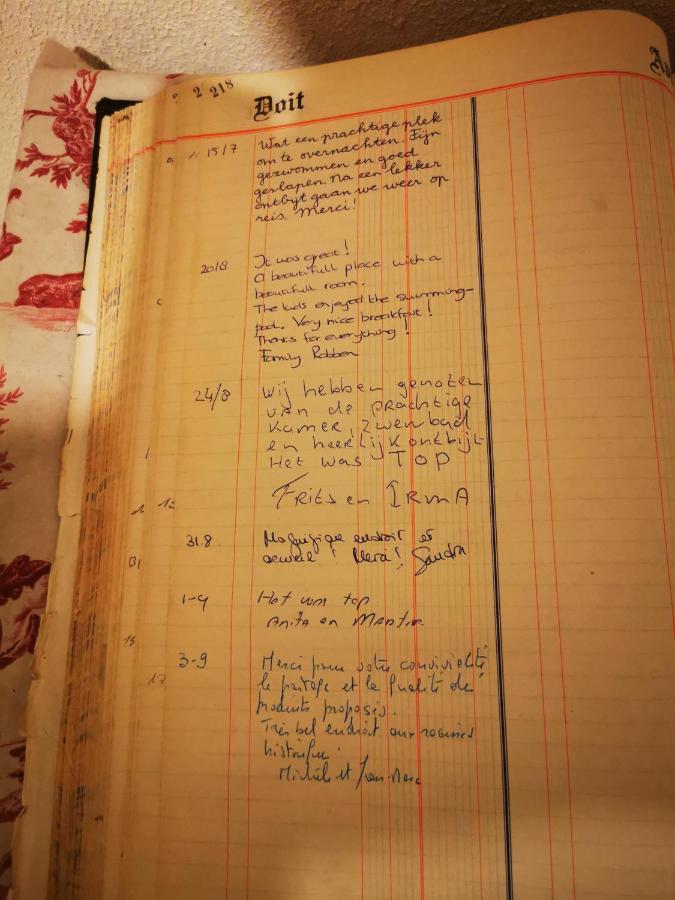 2 218
Doit
15/7
Wat een prachtige plek
om te overnachten. Fijn
gezwommen en goed
geslapen. Na een lekker
ontbijt gaan we weer op
reis. Merci!
20/8
It was great!
A beautifull place with a
beautifull room.
The kids enjoyed the swimming-
pool. Very nice breakfast!
Thanks for everything!
Family Robben
24/8
Wij hebben genoten
van de prachtige
kamer, zwembad
en heerlijk ontbijt
Het was TOP
Frits en IRMA
31.8.
Magnifique endroit et
acueil! Merci! Sandra
1-9
Het was top
Anita en Martin
3-9
Merci pour votre convivialité
le partage et la qualité des
produits proposés.
Très bel endroit aux racines
historique.
Michèle et Jean-Marc